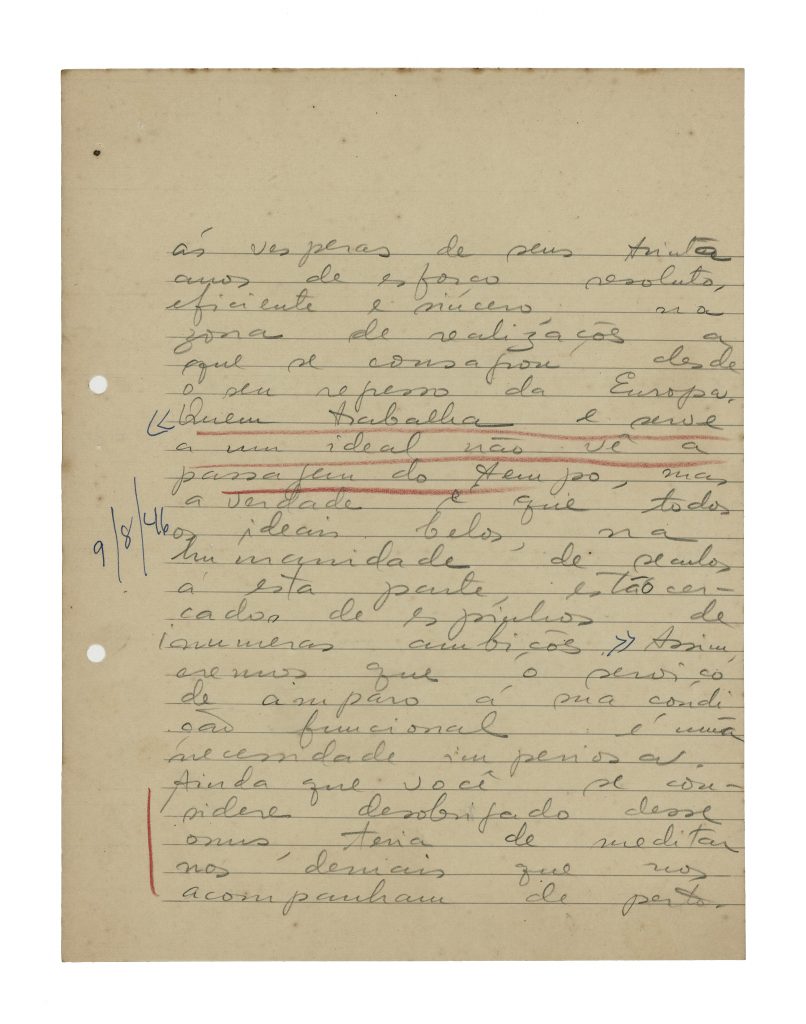 ás vesperas de seus trinta
anos de esforço resoluto,
eficiente e sincero, na
zona de realizações a
que se consagrou desde
o seu regresso da Europa.
«Quem trabalha e serve
a um ideal não vê a
passagem do tempo, mas
a verdade é que todos
os ideais belos, na
humanidade de seculos
a esta parte, estão cer-
cados de espinhos de
inumeras ambições» Assim,
cremos que o serviço
de amparo á sua condi
ção funcional é uma
necessidade imperiosa.
Ainda que você se con-
sidere desobrigado desse
onus teria de meditar
nos demais que nos
acompanham de perto.
9/8/46